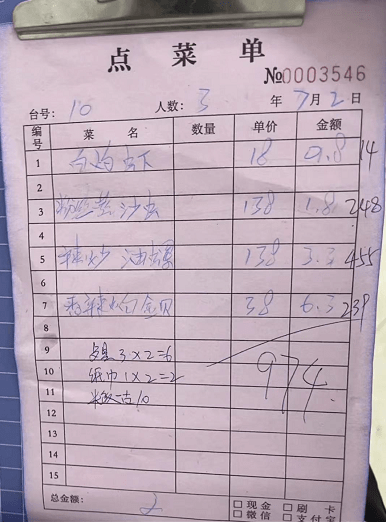 点菜单
№0003546
台号: 10 人数: 3 年 7月2日
编号 菜名 数量 单价 金额
1 白灼虾 18 0.8 14
2
3 粉丝蒸沙虫 138 1.8 248
4
5 辣炒 138 3.3 455
6
7 38 6.3 239
8
9 3×2=6
10 纸巾1×2=2
11 10
974
12
13
14
15
总金额:
□现金 □刷卡
□微信 □支付宝